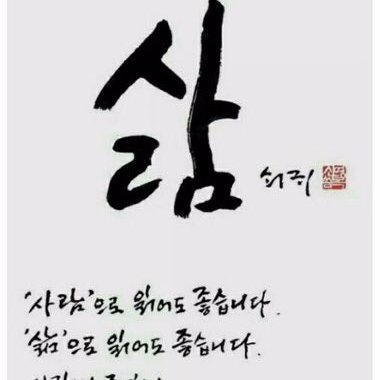 삶
쇠귀
'사람'으로 읽어도 좋습니다.
'삶'으로 읽어도 좋습니다.